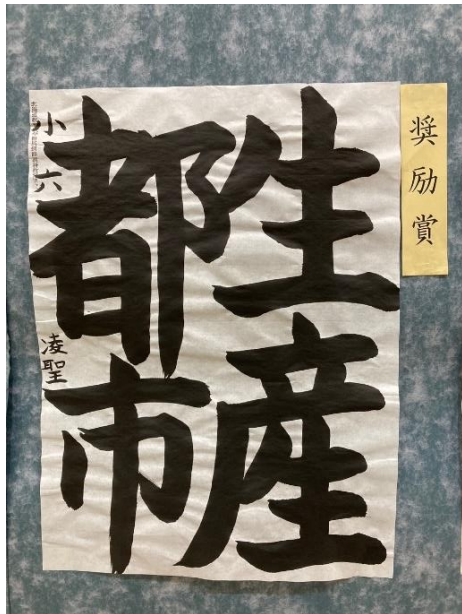 奨励賞
生産
都市
小六
凌聖